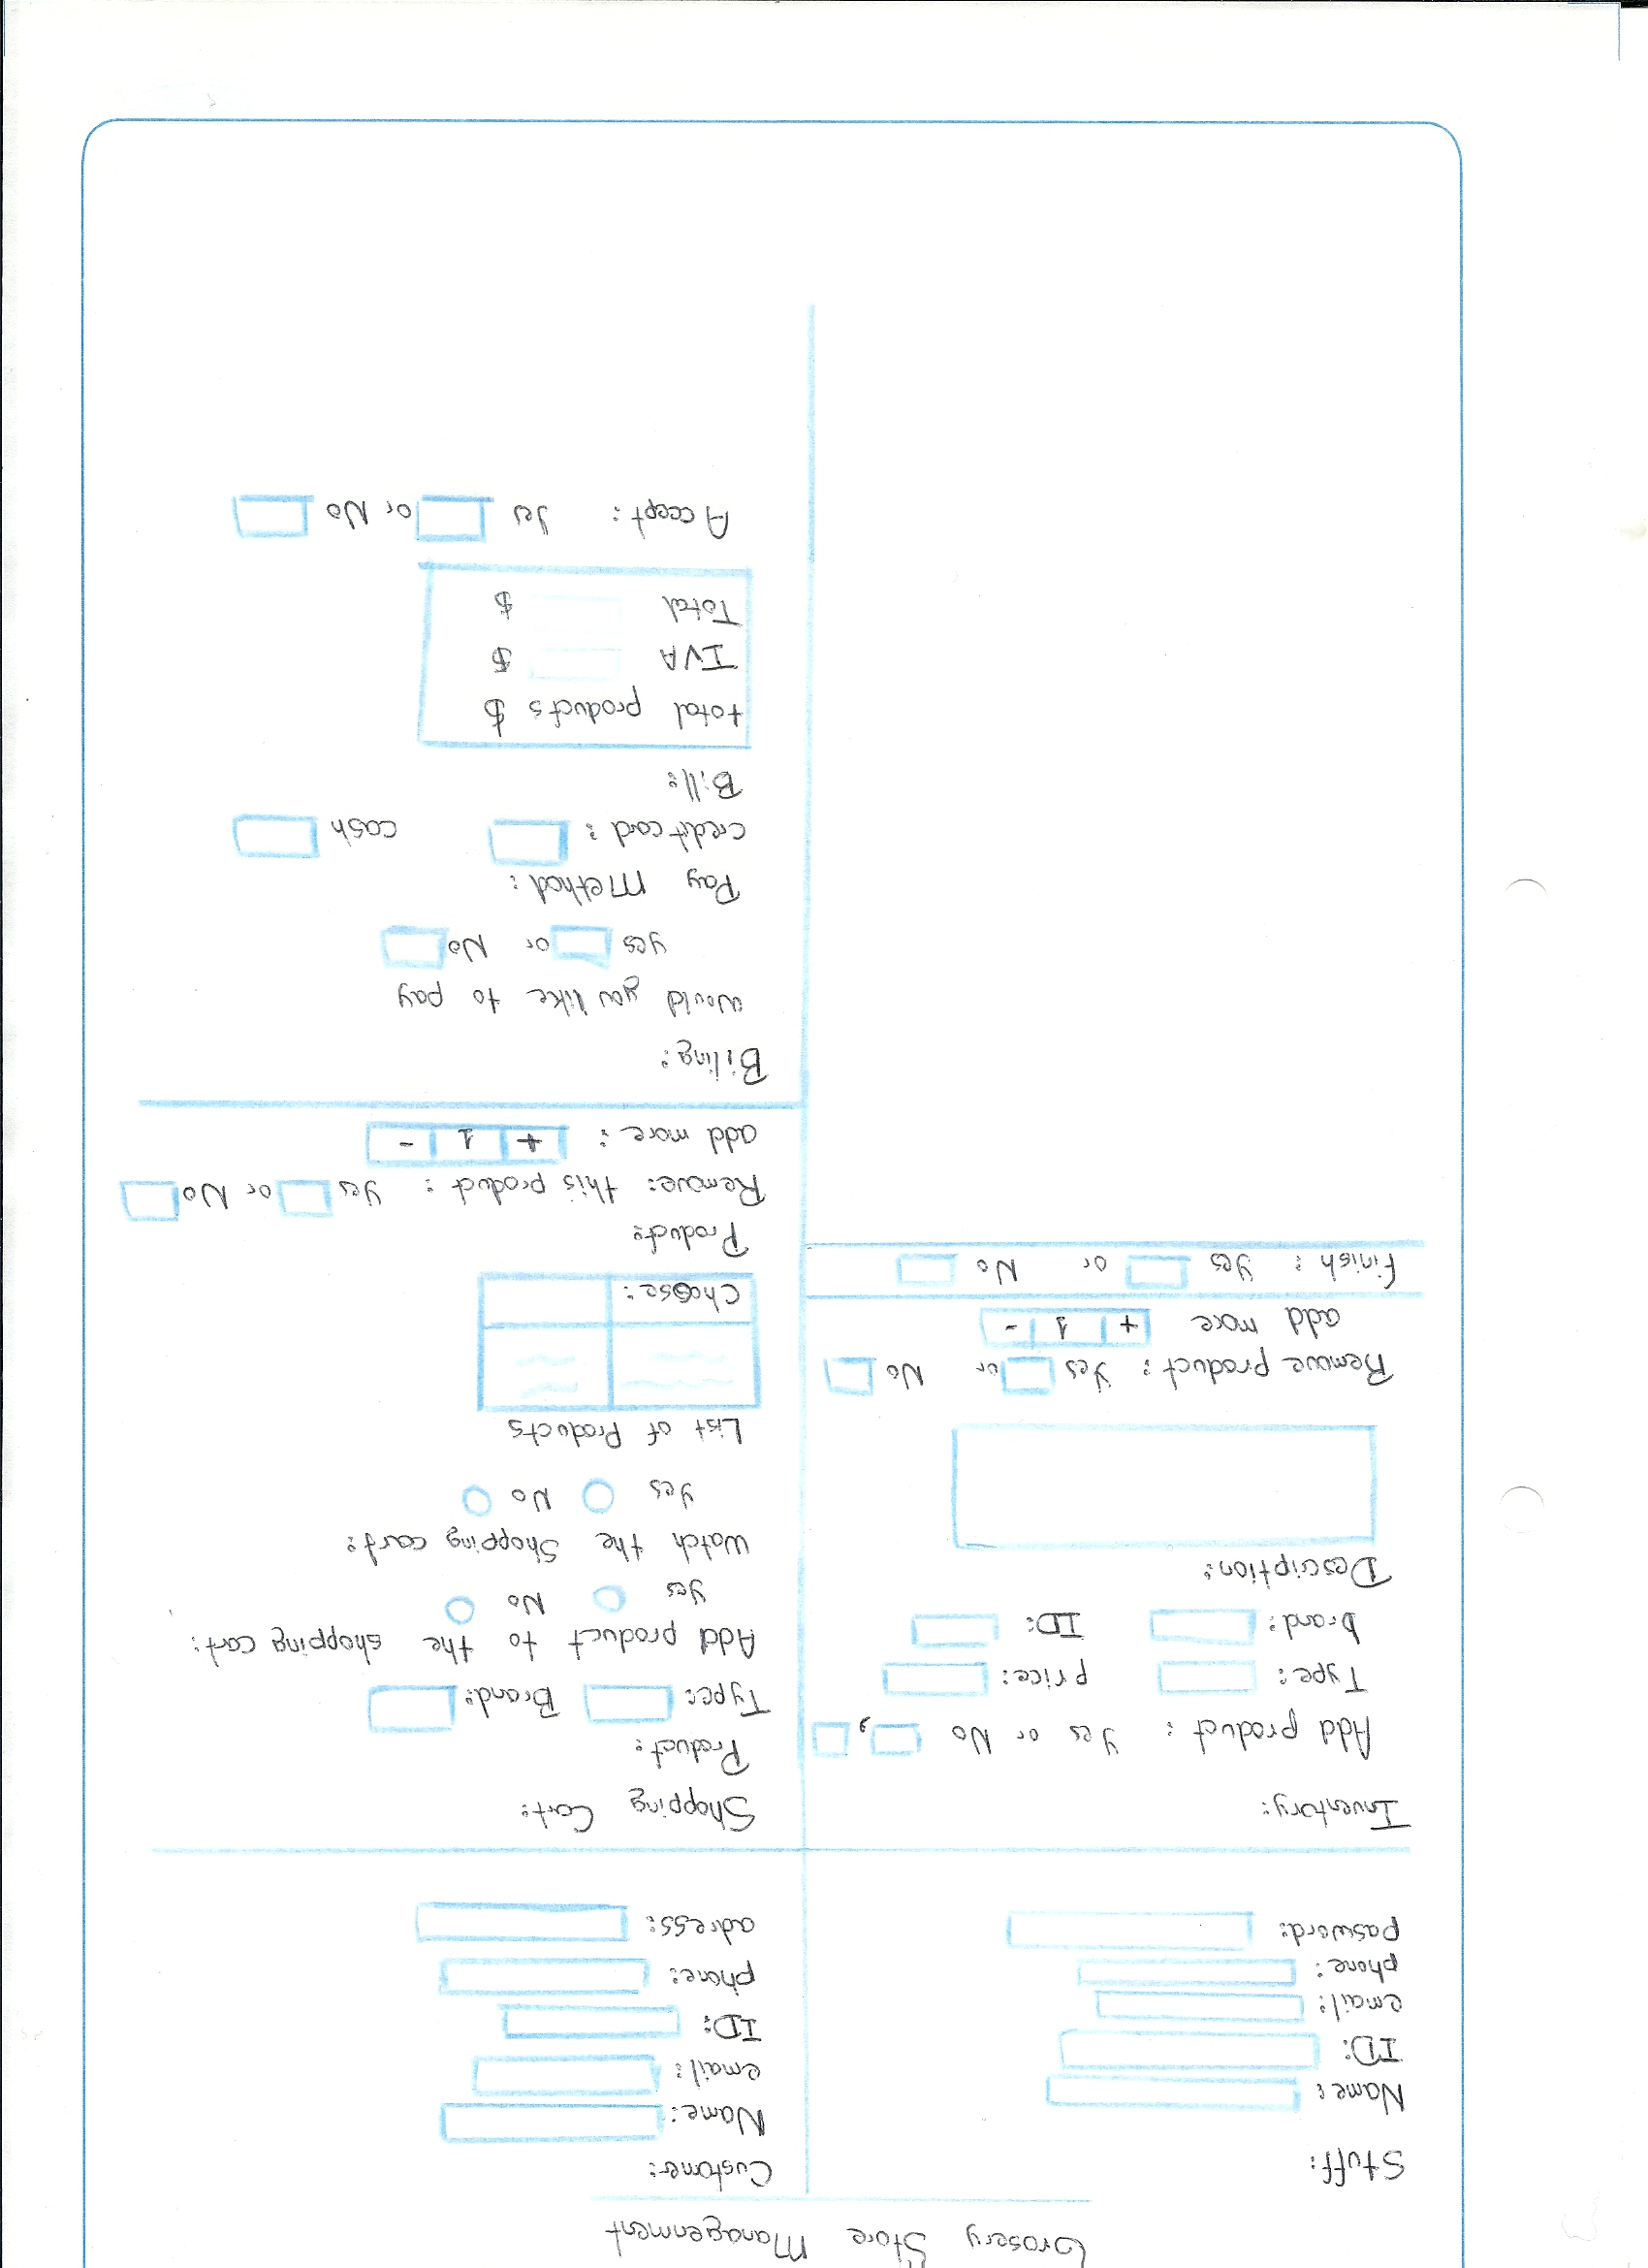 Grosery Store Managenment
Stuff:
Name:
ID:
email:
phone:
pasword:
Customer:
Name:
email:
ID:
phone:
adress:
Inventory:
Add product: Yes or No ,
Type: price:
brand: ID:
Description:
Remove product: Yes or No
add more + 1 -
Finish: Yes or No
Shopping Cart:
Product:
Type: Brand:
Add product to the shopping cart:
Yes No
Watch the Shopping cart:
Yes No
List of Products
choose:
Product:
Remove: this product: Yes or No
add more: + 1 -
Biling:
Would you like to pay
yes or No
Pay Method:
credit card: cash
Bill:
total products $
IVA $
Total $
Accept: Yes or No